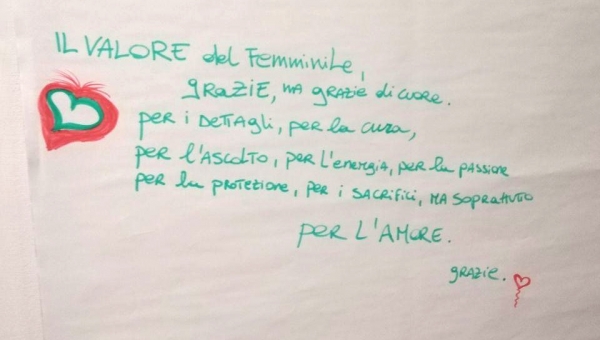 IL VALORE del Femminile,
GRAZIE, MA GRAZIE di CUORE.
per i DETTAGLI, per la cura,
per l'ASCOLTO, per L'energia, per la PASSIONE
per la PROTEZIONE, per i SACRIFICI, MA SOPRATTUTTO
per L'AMORE.
GRAZIE.